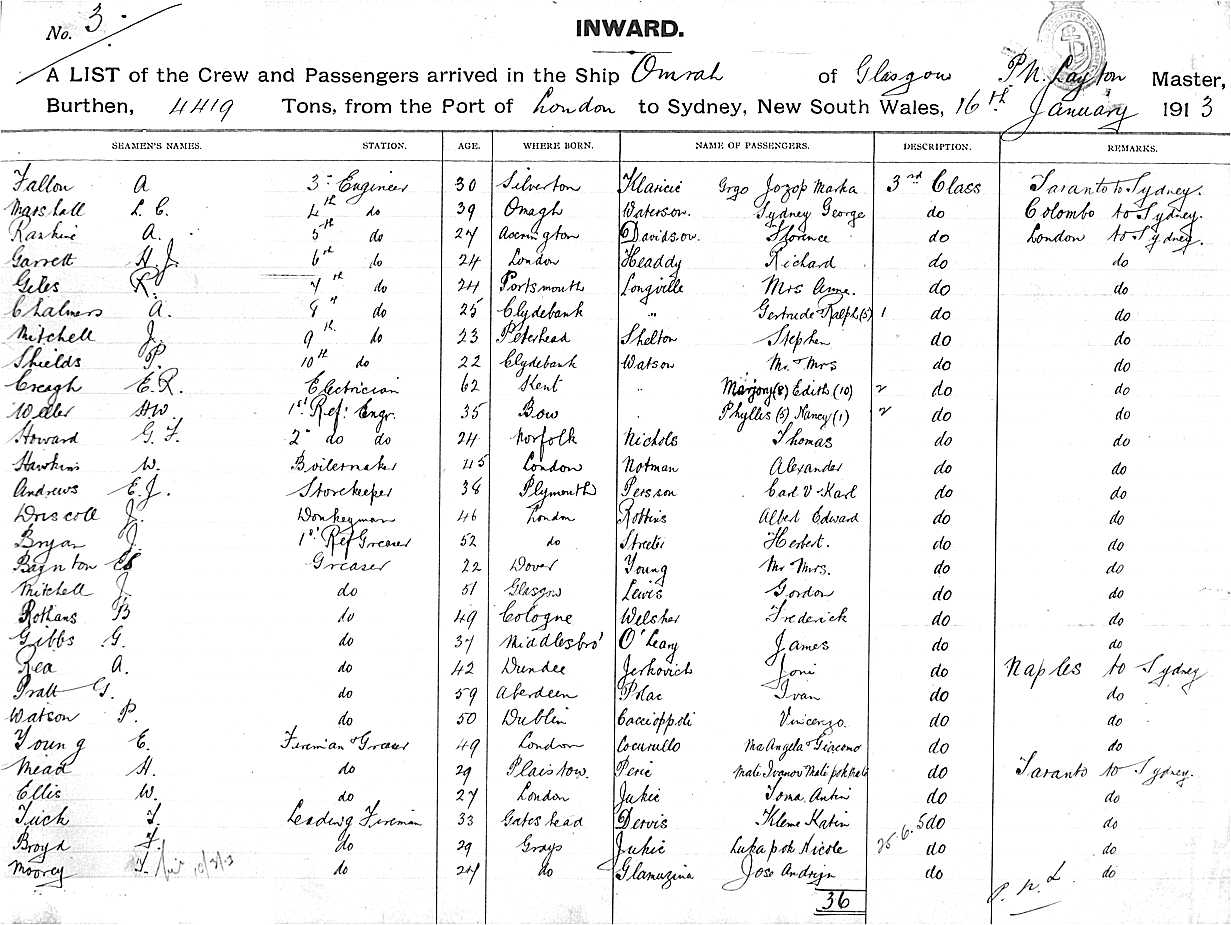 No. 3.
INWARD.
A LIST of the Crew and Passengers arrived in the Ship Omrah of Glasgow P.N. Layton Master,
Burthen, 4419 Tons, from the Port of London to Sydney, New South Wales, 16th January 1913
SEAMEN'S NAMES. STATION. AGE. WHERE BORN. NAME OF PASSENGERS. DESCRIPTION. REMARKS.
Fallon A 3rd Engineer 30 Silverton Klaricic Grgo Jozop Marka 3rd Class Taranto to Sydney.
Marshall L. C. 4th do 39 Omagh Waterson. Sydney George do Colombo to Sydney.
Rankine A. 5th do 27 Accrington Davidson. Florence do London to Sydney.
Garrett H. J. 6th do 24 London Headdy Richard do do
Giles R. 7th do 24 Portsmouth Longville Mrs Anne. do do
Chalmers A. 8th do 25 Clydebank " Gertrude Ralph (5) 1 do do
Mitchell J. 9th do 23 Peterhead Shelton Stephen do do
Shields P. 10th do 22 Clydebank Watson Mr. Mrs do do
Creagh E. R. Electrician 62 Kent " Marjory (8) Edith (10) 2 do do
Weller HW. 1st Ref: Engr. 35 Bow " Phyllis (5) Nancy (1) 2 do do
Howard G. F. 2nd do do 24 Norfolk Nichols Thomas do do
Hawkins W. Boilermaker 45 London Notman Alexander do do
Andrews E. J. Storekeeper 38 Plymouth Persson Carl V. Karl do do
Driscoll J. Donkeyman 46 London Robbins Albert Edward do do
Bryan J. 1st Ref Greaser 52 do Streeter Herbert. do do
Baynton Greaser 22 Dover Young Mr Mrs. do do
Mitchell J. do 51 Glasgow Lewis Gordon do do
Rothans B do 49 Cologne Welsher Frederick do do
Gibbs G. do 37 Middlesbro' O'Leary James do do
Rea A. do 42 Dundee Jerkovich Joni do Naples to Sydney
Pratt G. do 59 Aberdeen Polac Ivan do do
Watson P. do 50 Dublin Caccioppoli Vincenzo do do
Young E. Fireman & Greaser 49 London Cocurullo Ma Angela & Giacomo do do
Mead H. do 29 Plaistow. Peric Mati Ivanov Mati pok Mati do Taranto to Sydney.
Ellis W. do 27 London Jukic Toma Antin do do
Tuck T. Leading Fireman 33 Gateshead Dervis Kleme Katin 25.6.5 do do
Broyd F. do 29 Grays Jukic Luka pok Nicole do do
Moorey T. 10/3/13 do 24 do Glamuzina Joso Andrijn do do
36
P. N. L.